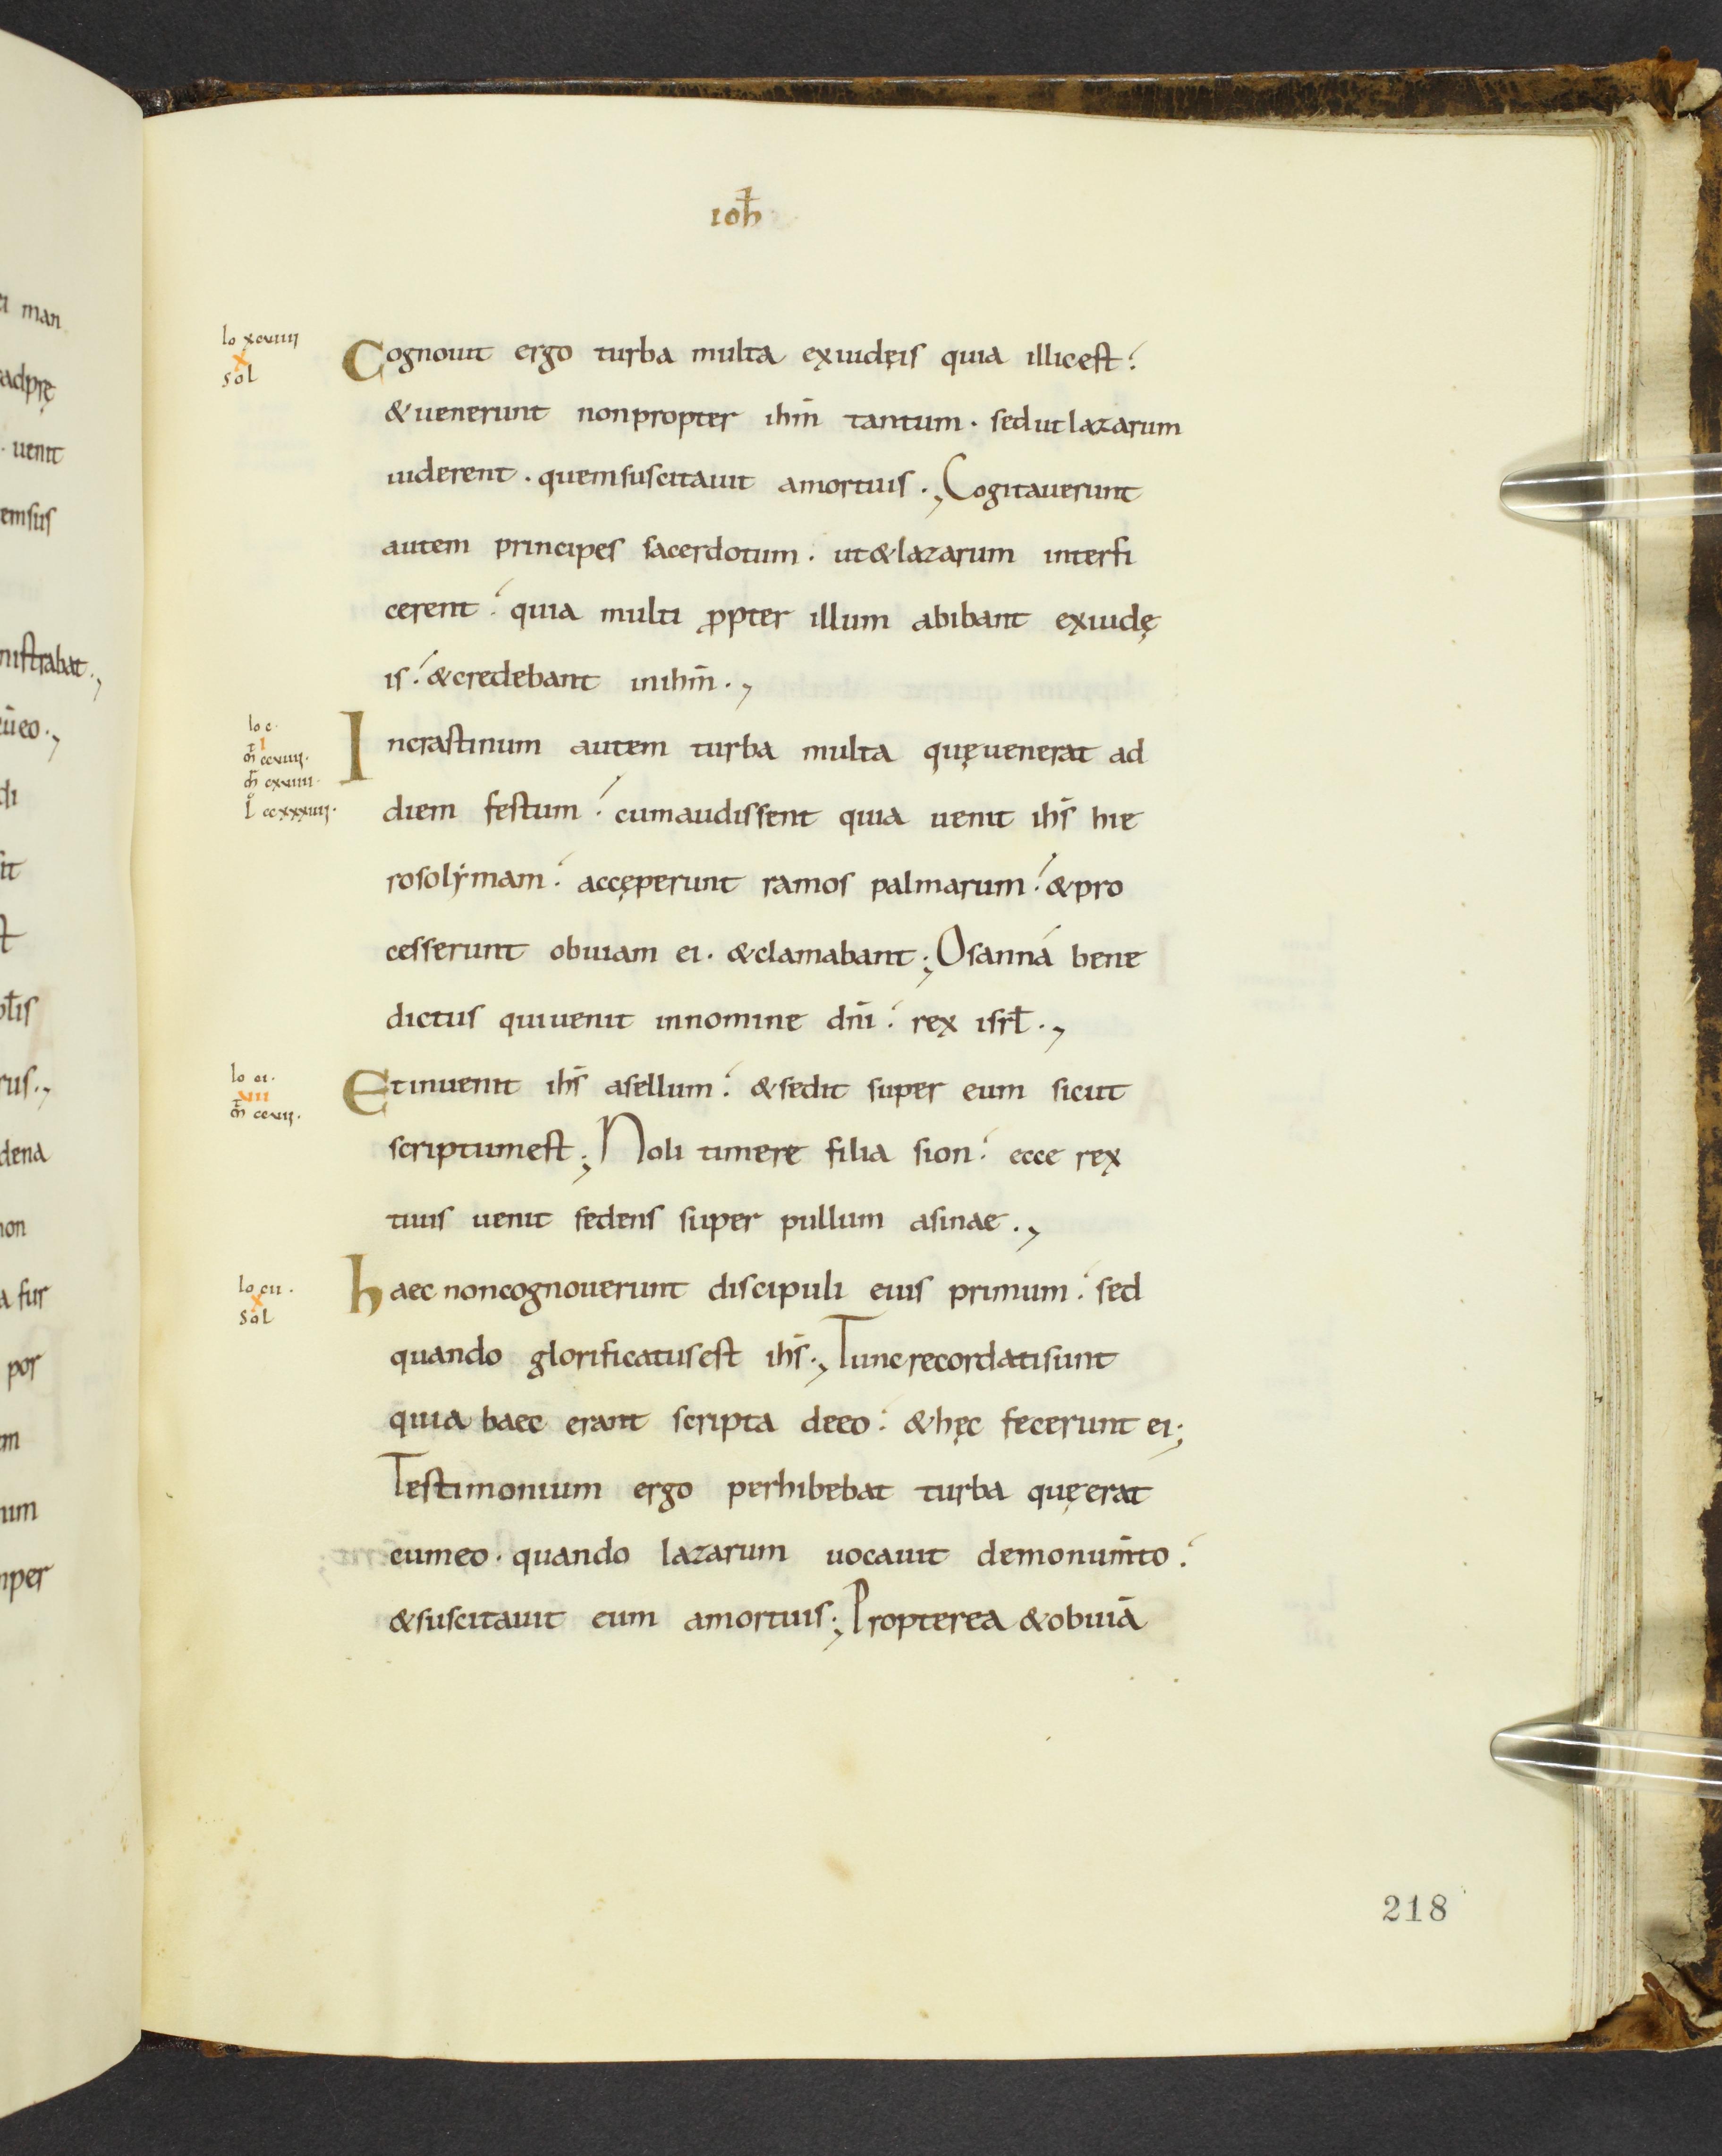 ioħ
Io xcviiii
x
sol
Cognouit ergo turba multa exiudęis quia illicest.
&uenerunt nonpropter ihm̄ tantum. sedutlazarum
uiderent. quemsuscitauit amortuis., Cogitauerunt
autem principes sacerdotum. ut&lazarum interfi
cerent. quia multi ꝓpter illum abibant exiudę
is. &credebant inihm̄.,
Io c.
I
m̄ ccviiii.
m̄ cxviiii.
L ccxxxiiii.
Incrastinum autem turba multa quęuenerat ad
diem festum. cumaudissent quia uenit ihs̄ hie
rosolẏmam. accęperunt ramos palmarum. &pro
cesserunt obuiam ei. &clamabant; Osanná bene
dictus quiuenit innomine dn̄i. rex isrl̄.,
Io ci.
vii
m̄ ccvii.
Etinuenit ihs̄ asellum. &sedit super eum sicut
scriptumest; Noli timere filia sion. ecce rex
tuus uenit sedens super pullum asinae.,
Io cii.
x
sol
haec noncognouerunt discipuli eius primum. sed
quando glorificatusest ihs̄., Tuncrecordatisunt
quia haec erant scripta deeo. &hęc fecerunt ei;
Testimonium ergo perhibebat turba quęerat
cumeo. quando lazarum uocauit demonum̄to.
&suscitauit eum amortuis; Propterea &obuiā
ti man
adprę
. uenit
emsus
nistrabat.,
cūeo.,
di
sit
rus.,
dena
non
a fur
por
em
num
mper
218